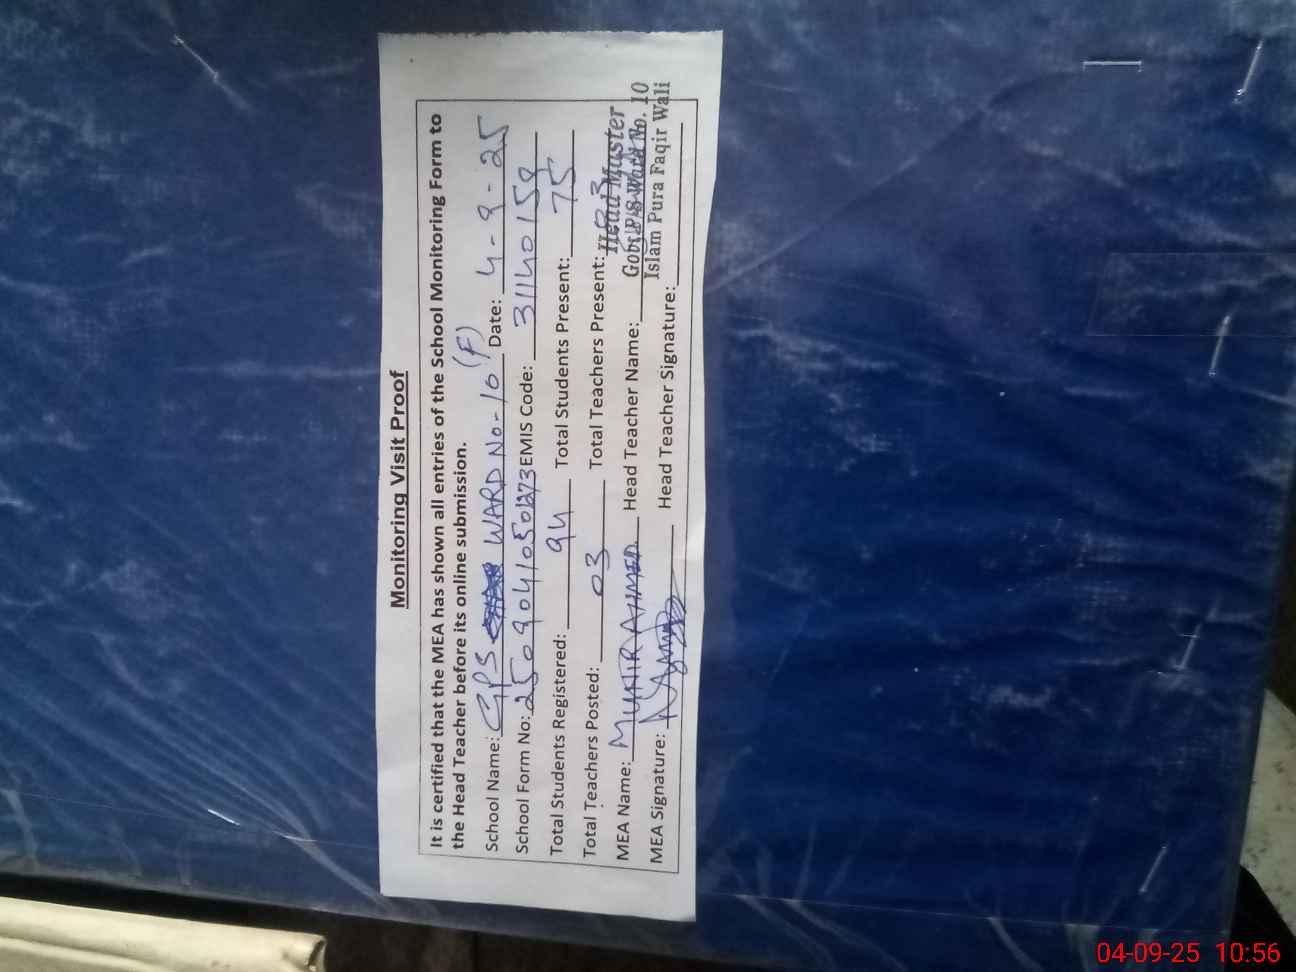 Monitoring Visit Proof
It is certified that the MEA has shown all entries of the School Monitoring Form to
the Head Teacher before its online submission.
School Name: GPS WARD No-10 (F) Date: 4-9-25
School Form No: EMIS Code: 31140159
Total Students Registered: 94 Total Students Present: 75
Total Teachers Posted: 03 Total Teachers Present: 03
MEA Name: MUNIR AHMED Head Teacher Name:
MEA Signature: Head Teacher Signature:
Head Master
Govt. P/S Ward No. 10
Islam Pura Faqir Wali
04-09-25 10:56